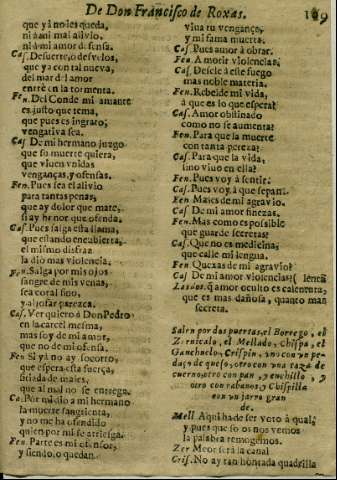 De Don Francisco de Roxas. 119
que ya no les queda,
ni à mi mal alivio,
ni à mi amor defensa.
Cas. Desuerte, o desvelos,
que ya con tal nueva,
del mar del amor
entrè en la tormenta.
Fen. Del Conde mi amante
es justo que tema,
que pues es ingrato,
vengativa sea.
Cas. De mi hermano juzgo
que su muerte quiera,
que viuen vnidas
venganças, y ofensas.
Fen. Pues sea el alivio
para tantas penas,
que ay dolor que mate,
si ay honor que ofenda.
Cas. Pues salga esta llama,
que estando encubierta,
el mismo disfraz
la dio mas violencia.
Fen. Salga por mis ojos
sangre de mis venas,
sea coral fino,
y aljofar parezca.
Cas. Ver quiero à Don Pedro
en la carcel mesma,
mas soy de mi amor,
que no de mi ofensa.
Fen. Si yà no ay socorro,
que espera esta fuerça,
sitiada de males,
que al mal no se entrega.
Ca. Por mi dio a mi hermano
la muerte sangrienta,
y no me ha ofendido
quien por mi se arriesga.
Fen. Parte es mi ofensor,
y siendo, o quedan
viua tu vengança,
y mi fama muerta.
Cas. Pues amor à obrar.
Fen. A morir violencias.
Cas. Desele à este fuego
mas noble materia.
Fen. Rebelde mi vida,
à que es lo que espera?
Cas. Amor obstinado
como no se aumenta?
Fen. Para que la muerte
con tanta pereza?
Cas. Para que la vida,
sino viuo en ella?
Fen. Pues voy à sentir.
Cas. Pues voy à que sepan.
Fen. Males de mi agravio.
Cas. De mi amor finezas.
Fen. Mas como es possible
que guarde secretas?
Cas. Que no es medicina,
que calle mi lengua.
Fen. Quexas de mi agravio?
Cas. De mi amor violencias?
Las dos. q̃ amor oculto es calentura,
que es mas dañosa, quanto mas
secreta.
Salen por dos puertas, el Borrego, el
Zernicalo, el Mellado, Chispa, el
Ganchuelo, Crispin, vno con vn pedaço
de queso, otro con vna taza de
cuerno, otro con pan, y cuchillo, y
otro con rabanos, y Chispilla
con vn jarro gran
de.
Mell. Aqui ha de ser voto à qual,
y pues que solos nos vemos
la palabra remoguemos.
Zer. Meor serà la canal
Cris. No ay tan honrada quadrilla